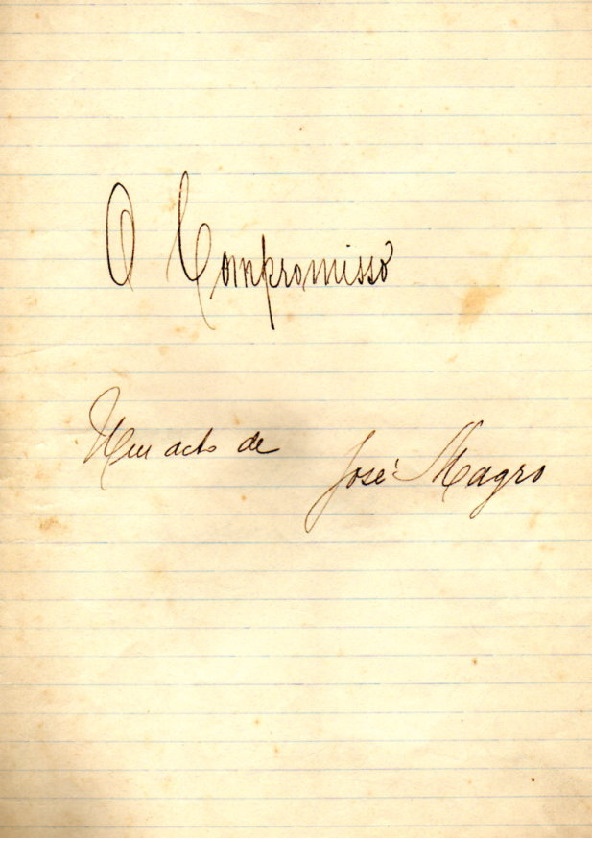 O Compromisso
Um acto de José Magro